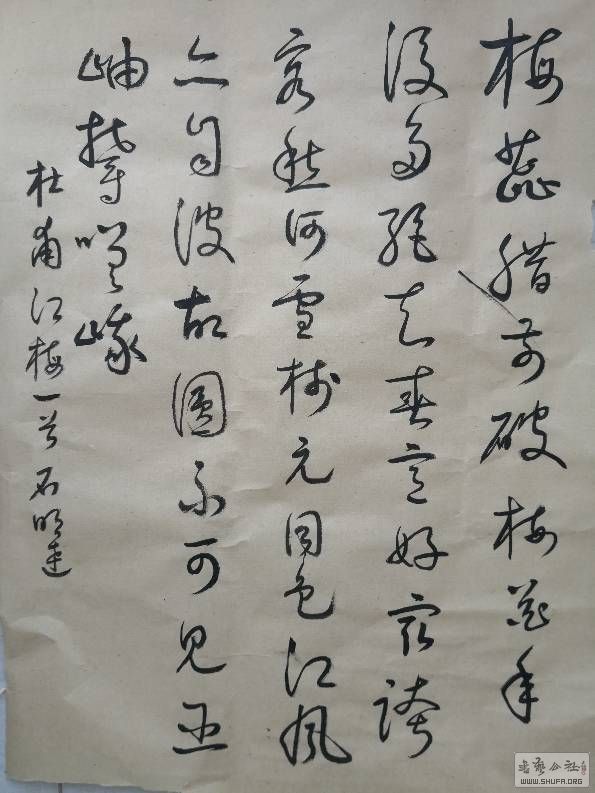 梅蕊腊前破梅花年
後多絕知春意好最
客愁何雪树元同色江风
亦自波故園不可見巫
岫鬱嵯峨
杜甫江梅一首石明
书艺公社
WWW.SHUFA.ORG